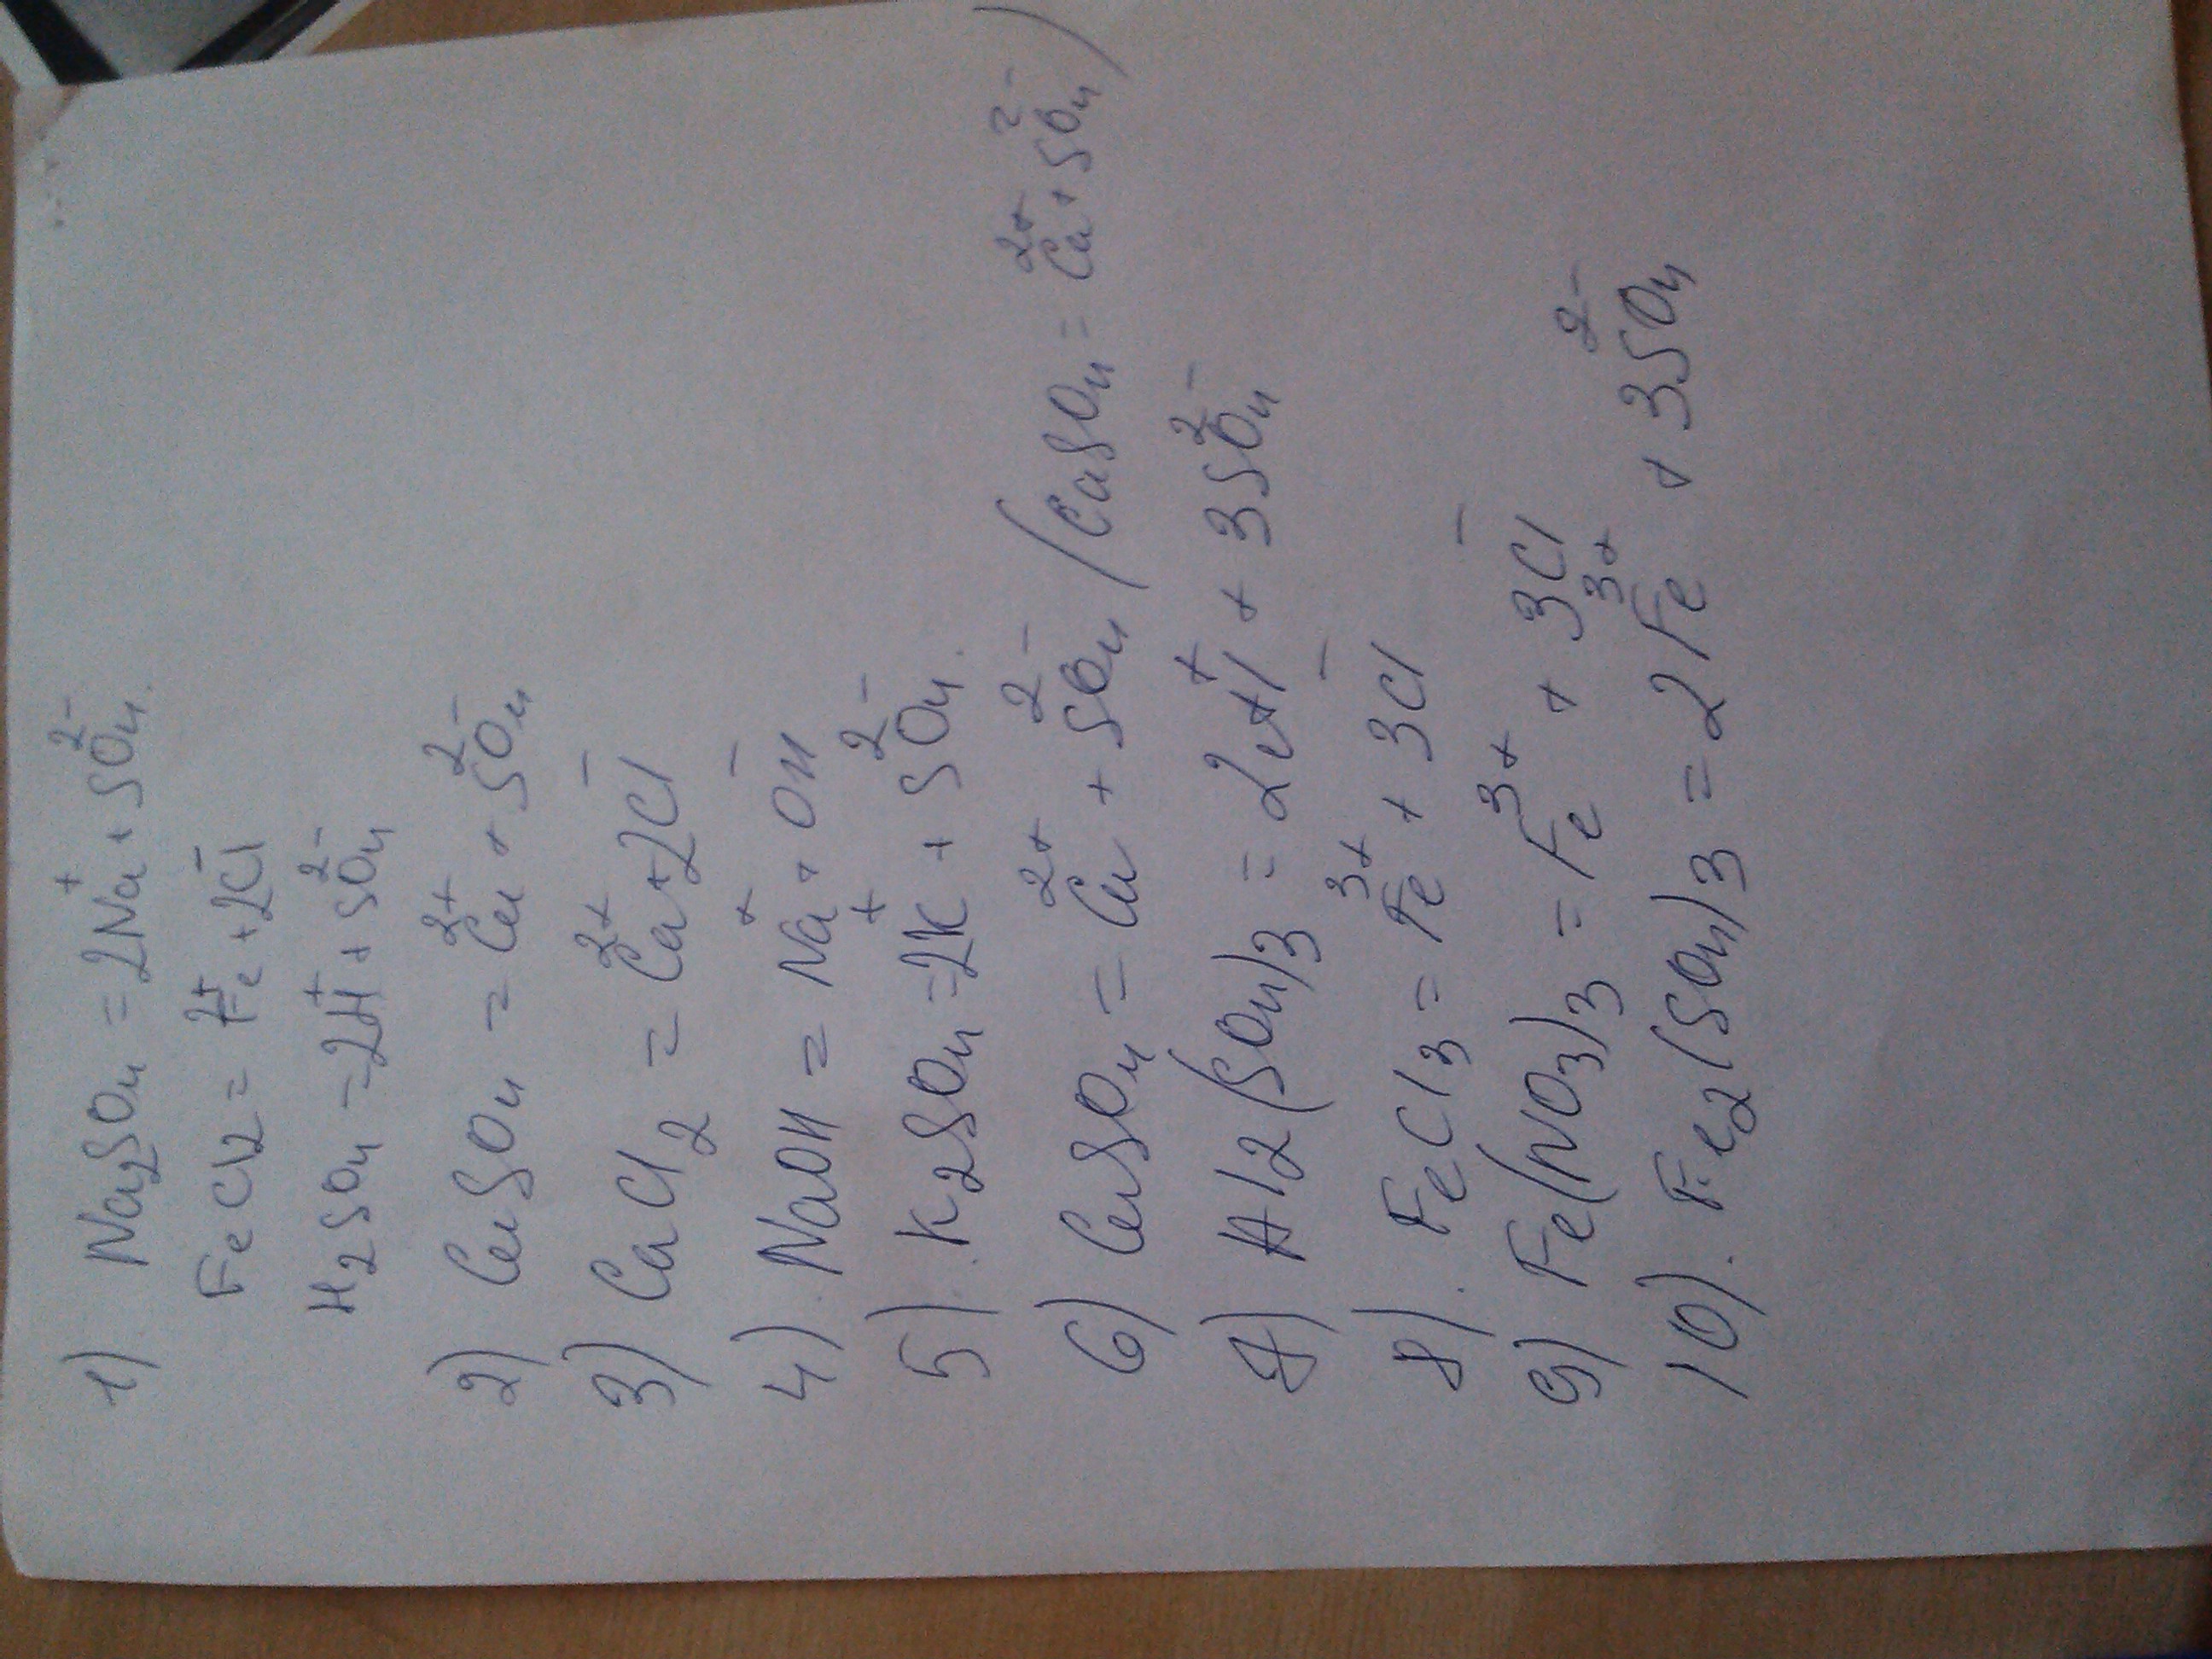 1). Na₂SO₄ = 2Na⁺ + SO₄²⁻.
FeCl₂ = Fe²⁺ + 2Cl⁻
H₂SO₄ = 2H⁺ + SO₄²⁻
2) CuSO₄ = Cu²⁺ + SO₄²⁻
3) CaCl₂ = Ca²⁺ + 2Cl⁻
4). NaOH = Na⁺ + OH⁻
5). K₂SO₄ = 2K⁺ + SO₄²⁻.
6) CuSO₄ = Cu²⁺ + SO₄²⁻ (CaSO₄ = Ca²⁺ + SO₄²⁻)
7) Al₂(SO₄)₃ = 2Al⁺ + 3SO₄²⁻
8). FeCl₃ = Fe³⁺ + 3Cl⁻
9) Fe(NO₃)₃ = Fe³⁺ + 3Cl⁻
10). Fe₂(SO₄)₃ = 2Fe³⁺ + 3SO₄²⁻